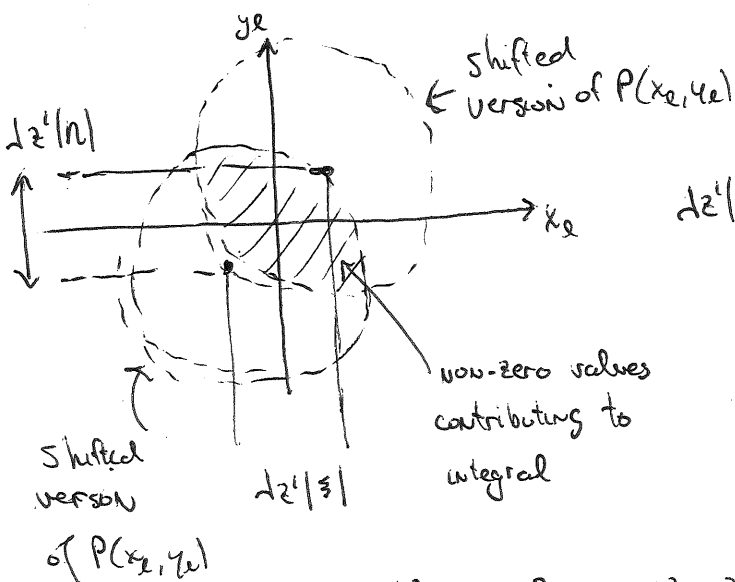 yℓ
shifted
version of P(xℓ, yℓ)
λz'|η|
xℓ
λz'|
non-zero values
contributing to
integral
shifted
version
of P(xℓ, yℓ)
λz'|ξ|